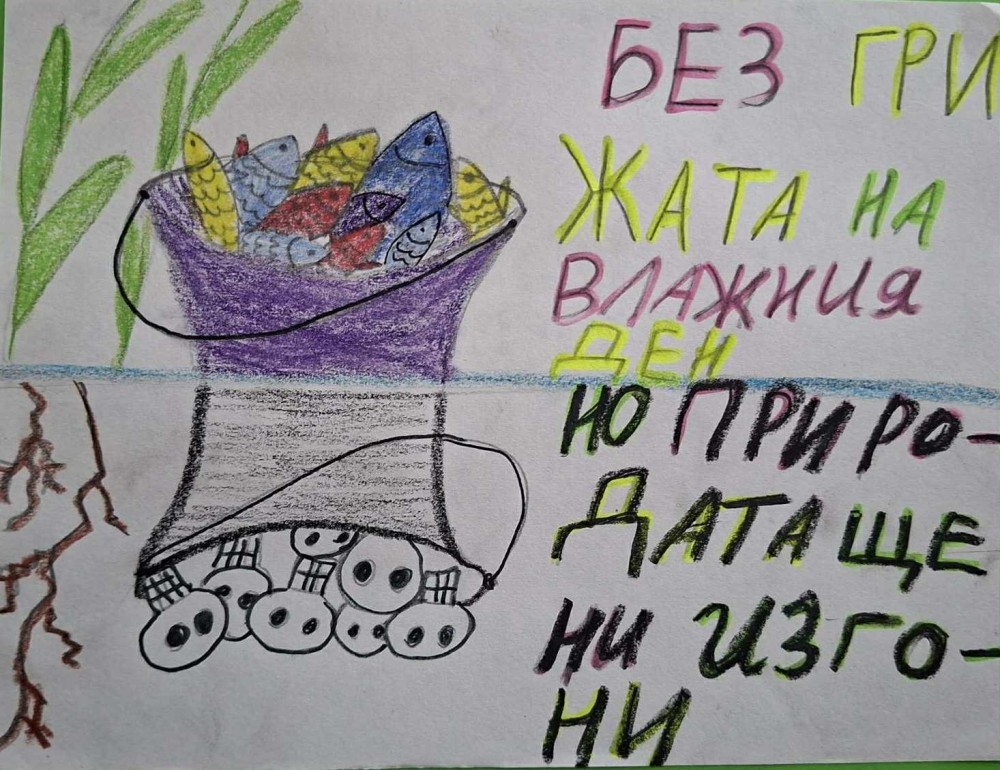 БЕЗ ГРИ
ЖАТА НА
ВЛАЖНИЯ
ДЕН
НО ПРИРО-
ДАТА ЩЕ
НИ ИЗГО-
НИ